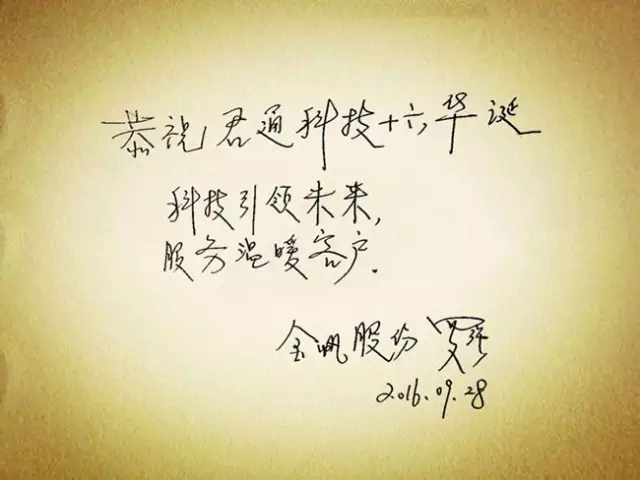 恭祝君通科技十六华诞
科技引领未来,
服务温暖客户.
金帆股份
2016.09.28